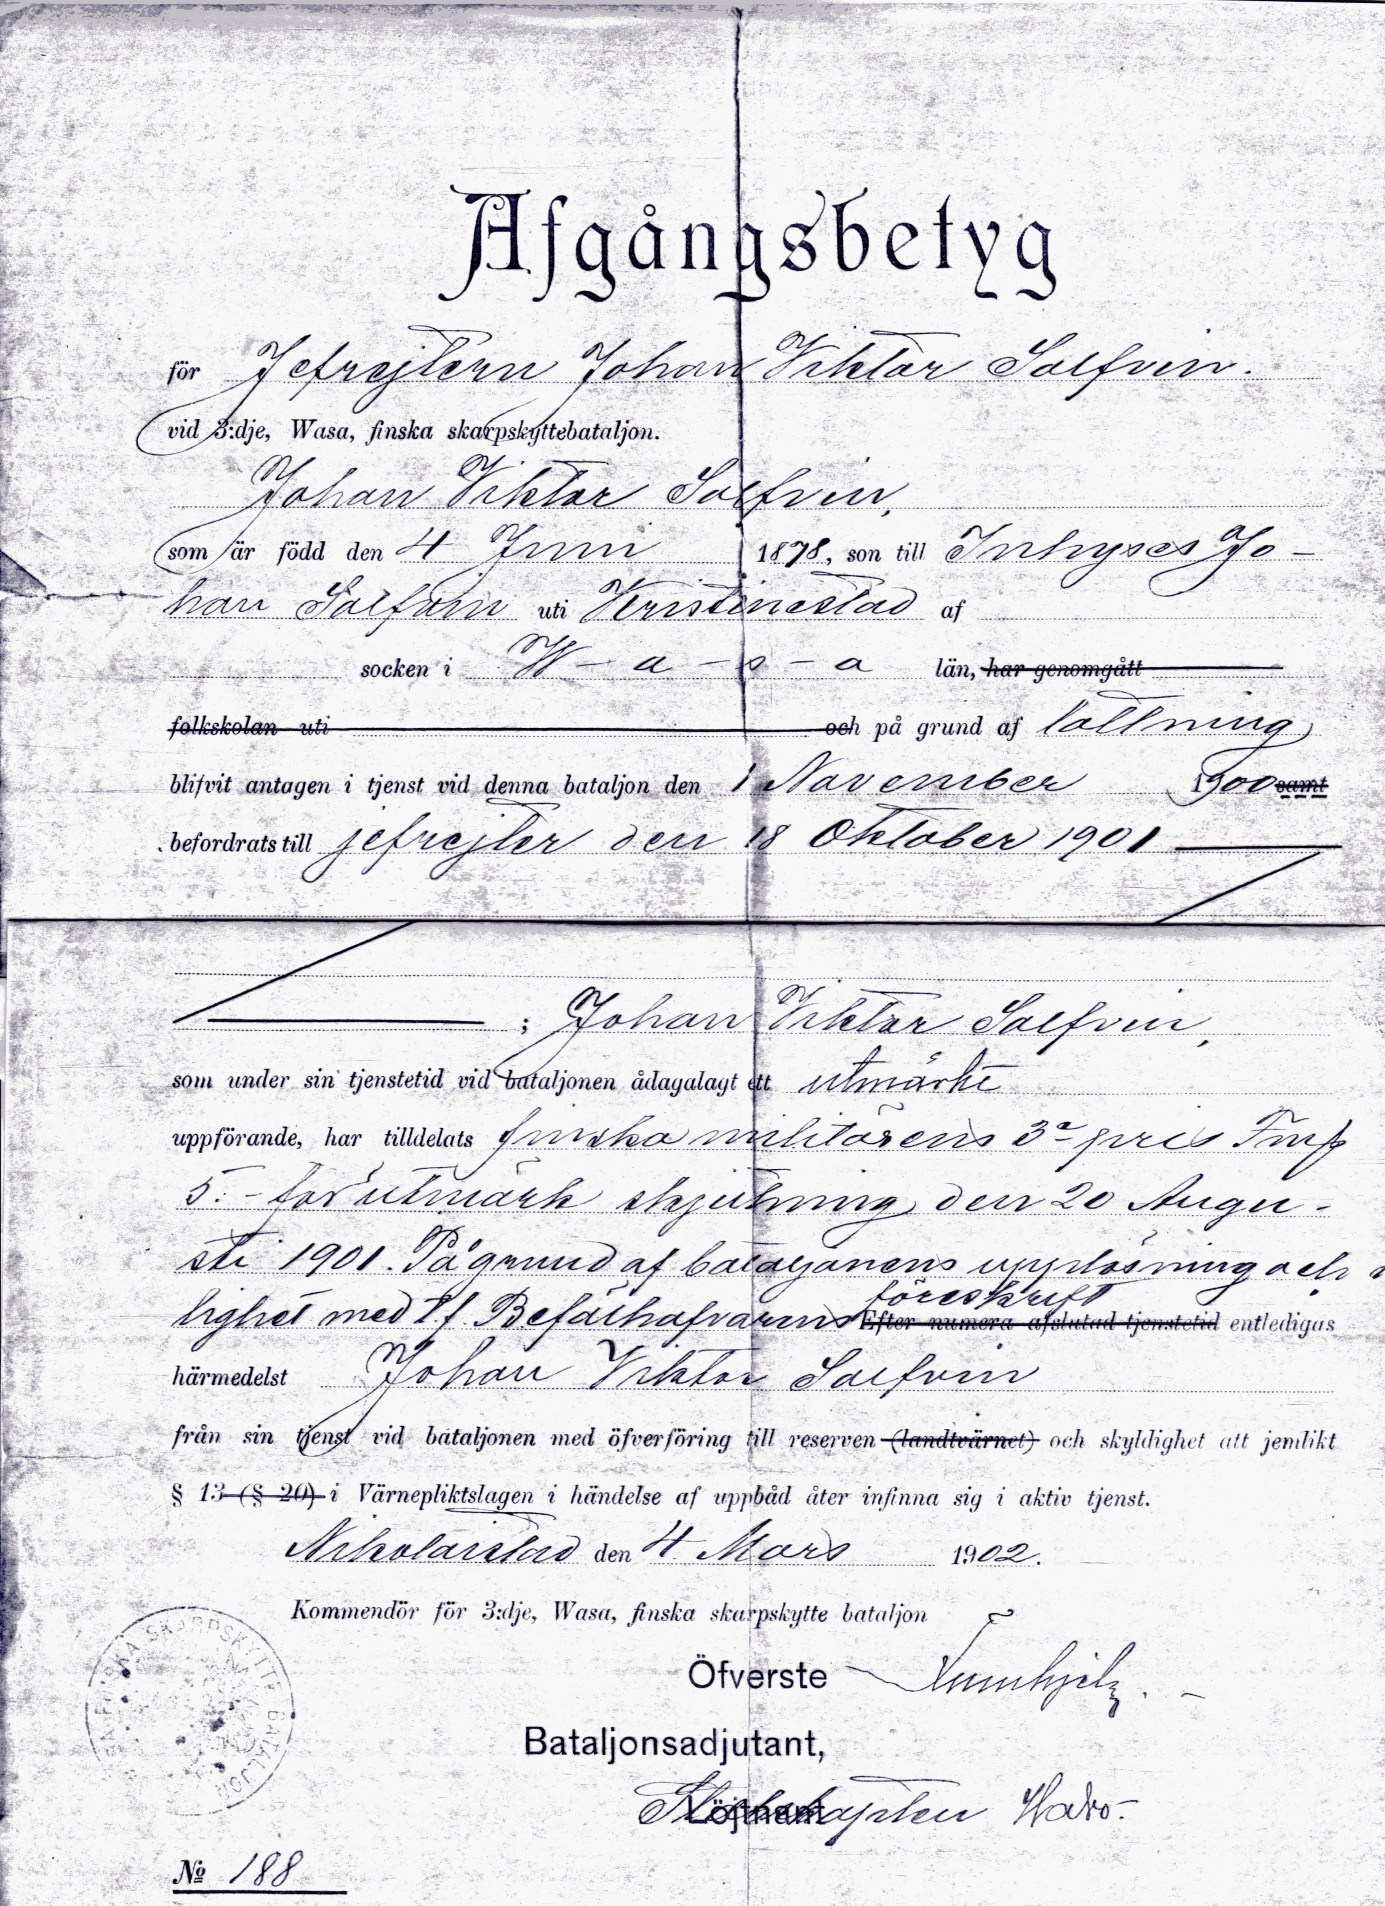 Afgångsbetyg
för Jefrejtern Johan Viktor Salfvin.
vid 3:dje, Wasa, finska skarpskyttebataljon.
Johan Viktor Salfvin,
som är född den 4 Juni 1878, son till Inhyses Jo-
han Salfvin uti Kristinestad af
socken i W-a-s-a län, har genomgått
folkskolan uti och på grund af lottning
blifvit antagen i tjenst vid denna bataljon den 1 November 1900 samt
befordrats till jefrejter den 18 Oktober 1901
; Johan Viktor Salfvin,
som under sin tjenstetid vid bataljonen ådagalagt ett utmärkt
uppförande, har tilldelats finska militärens 3e pris Fmk
5:- för utmärk skjutning den 20 Augu-
sti 1901. På grund af bataljonens upplösning och
föreskrift
lighet med T.f. Befälhafvarens Efter numera afslutad tjenstetid entledigas
härmedelst Johan Viktor Salfvin
från sin tjenst vid bataljonen med öfverföring till reserven (landtvärnet) och skyldighet att jemlikt
§ 13 (§ 20) i Värnepliktslagen i händelse af uppbåd åter infinna sig i aktiv tjenst.
Nikolaistad den 4 Mars 1902.
Kommendör för 3:dje, Wasa, finska skarpskytte bataljon
FINSKA SKARPSKYTTE BATALJON
Öfverste
Bataljonsadjutant,
Löjtnant Stabskapten
№ 188